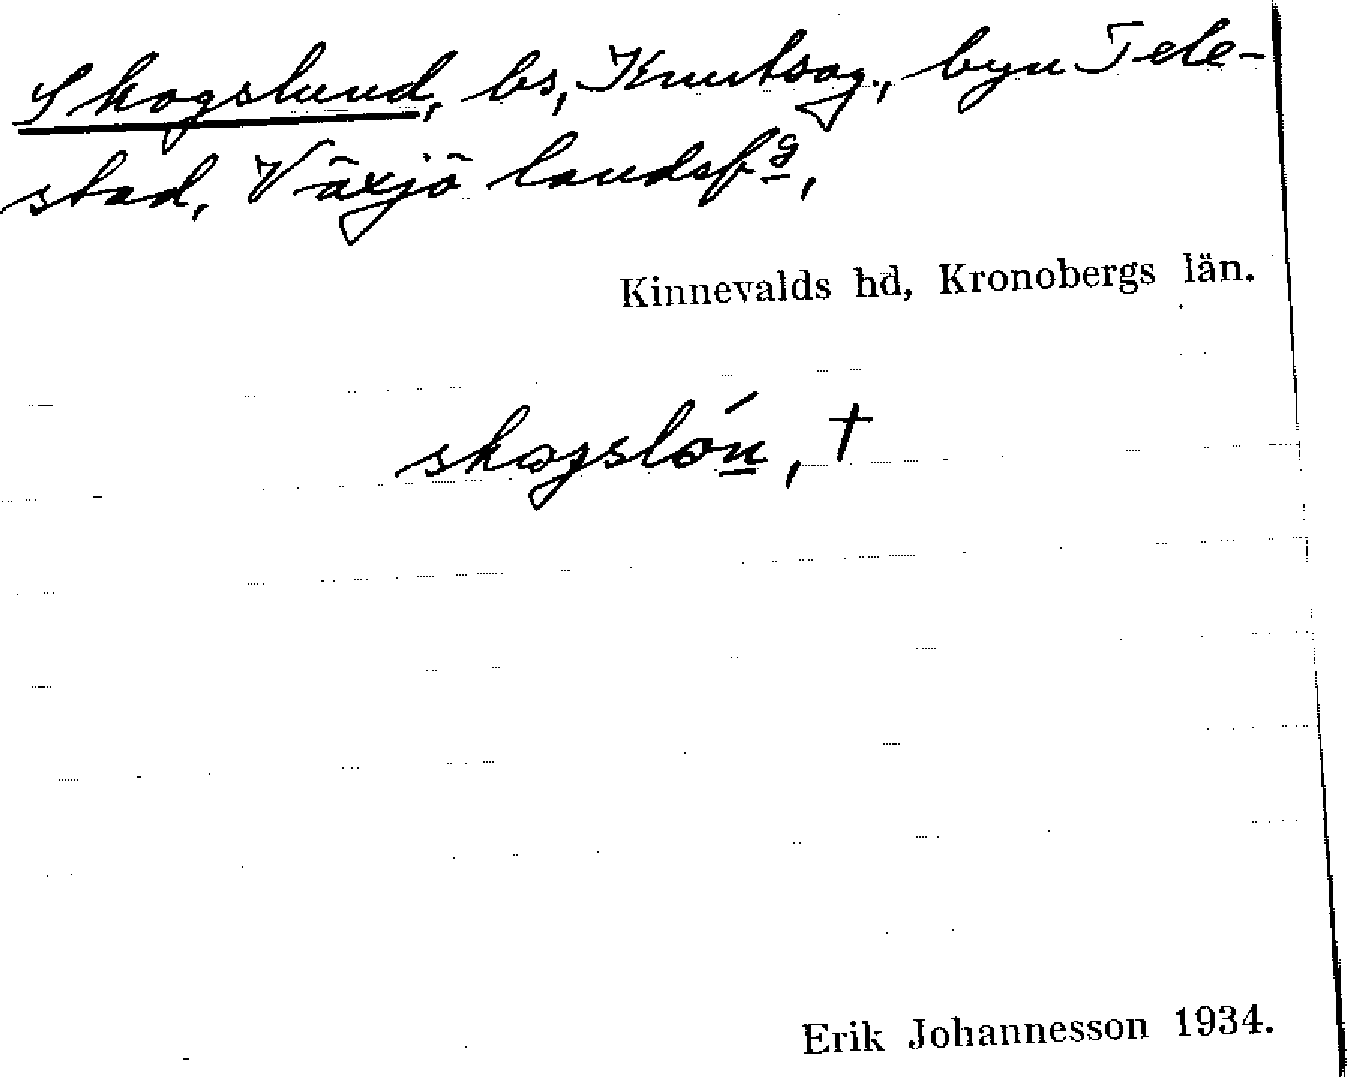 Skogslund, bs, Knutsag., byn Tele-
stad, Växjö landsfg,
Kinnevalds hd, Kronobergs län.
skogslón, †
Erik Johannesson 1934.